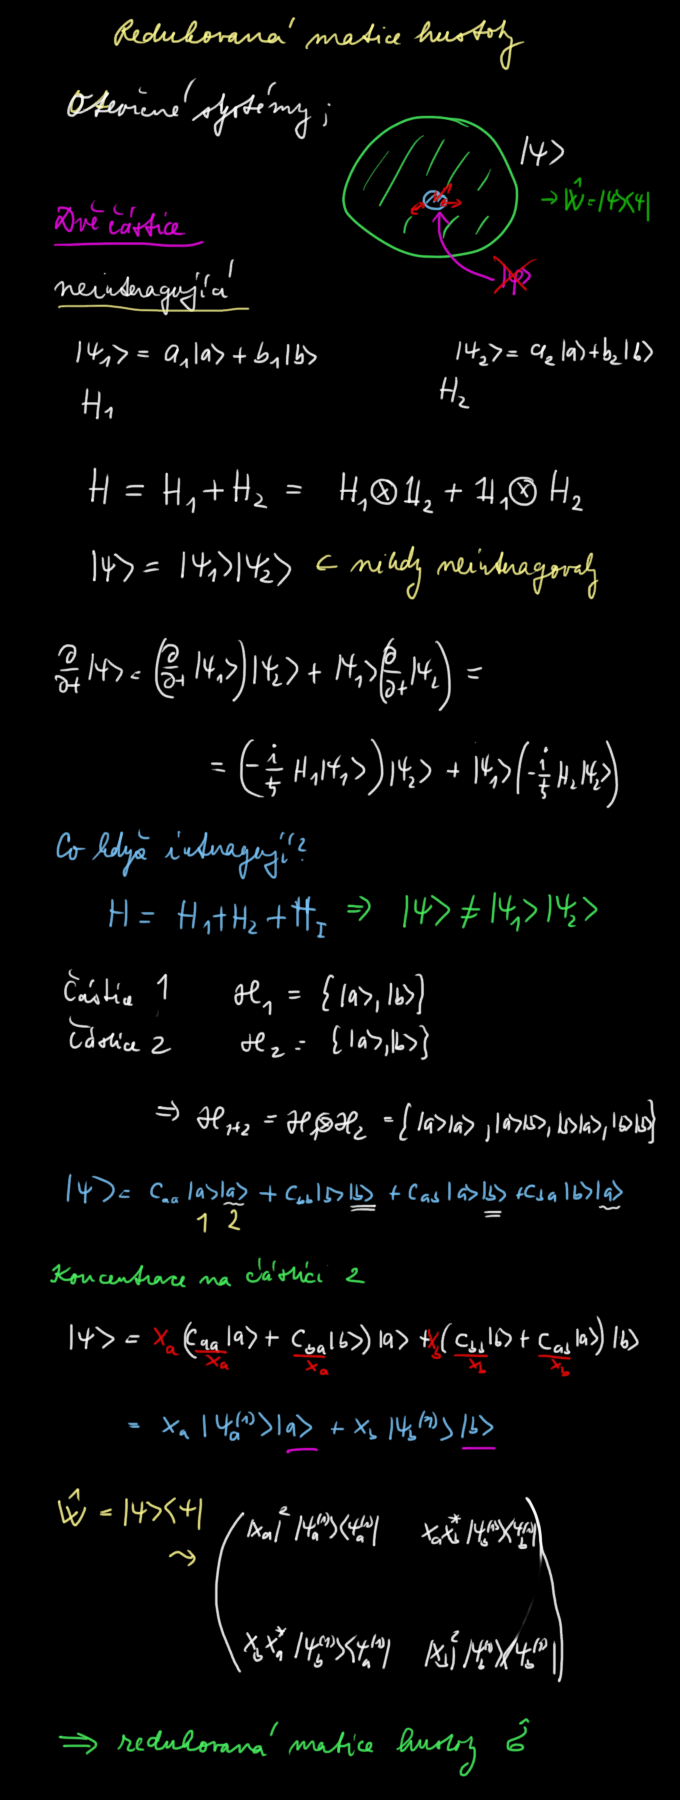 Redukovaná matice hustoty
Otevřené systémy;
|ψ>
→ Ŵ = |ψ><ψ|
Dvě částice
|ψ>
neinteragující
|ψ₁> = a₁|a> + b₁|b>
|ψ₂> = a₂|a> + b₂|b>
H₁
H₂
H = H₁ + H₂ = H₁ ⊗ 1₂ + 1₁ ⊗ H₂
|ψ> = |ψ₁>|ψ₂> ← nikdy neinteragovaly
∂/∂t |ψ> = (∂/∂t |ψ₁>)|ψ₂> + |ψ₁>(∂/∂t |ψ₂>) =
= (-i/ħ H₁|ψ₁>)|ψ₂> + |ψ₁>(-i/ħ H₂|ψ₂>)
Co když interagují?
H = H₁ + H₂ + H_I ⇒ |ψ> ≠ |ψ₁>|ψ₂>
částice 1 ℋ₁ = {|a>, |b>}
částice 2 ℋ₂ = {|a>, |b>}
⇒ ℋ₁₊₂ = ℋ₁⊗ℋ₂ = {|a>|a>, |a>|b>, |b>|a>, |b>|b>}
|ψ> = c_aa |a>|a> + c_bb |b>|b> + c_ab |a>|b> + c_ba |b>|a>
1 2
Koncentrace na částici 2
|ψ> = x_a (c_aa/x_a |a> + c_ba/x_a |b>) |a> + x_b (c_bb/x_b |b> + c_ab/x_b |a>) |b>
= x_a |ψ_a⁽¹⁾>|a> + x_b |ψ_b⁽¹⁾>|b>
Ŵ = |ψ><ψ|
⇝ ( |x_a|² |ψ_a⁽¹⁾><ψ_a⁽¹⁾| x_a x_b* |ψ_b⁽¹⁾><ψ_b⁽¹⁾|
x_b x_a* |ψ_b⁽¹⁾><ψ_a⁽¹⁾| |x_b|² |ψ_b⁽¹⁾><ψ_b⁽¹⁾| )
⇒ redukovaná matice hustoty ρ̂